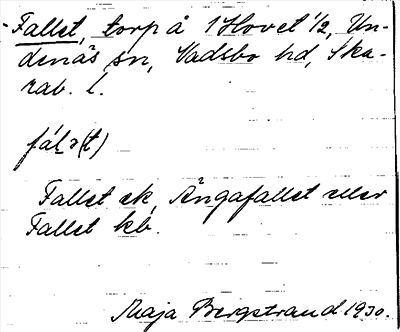 Fallet, torp å 1 Hovet 1/2, Un-
denäs sn, Vadsbo hd, Ska-
rab. l.
fálə(t)
Fallet ek, Ängafallet eller
Fallet kb.
Maja Bergstrand 1930.